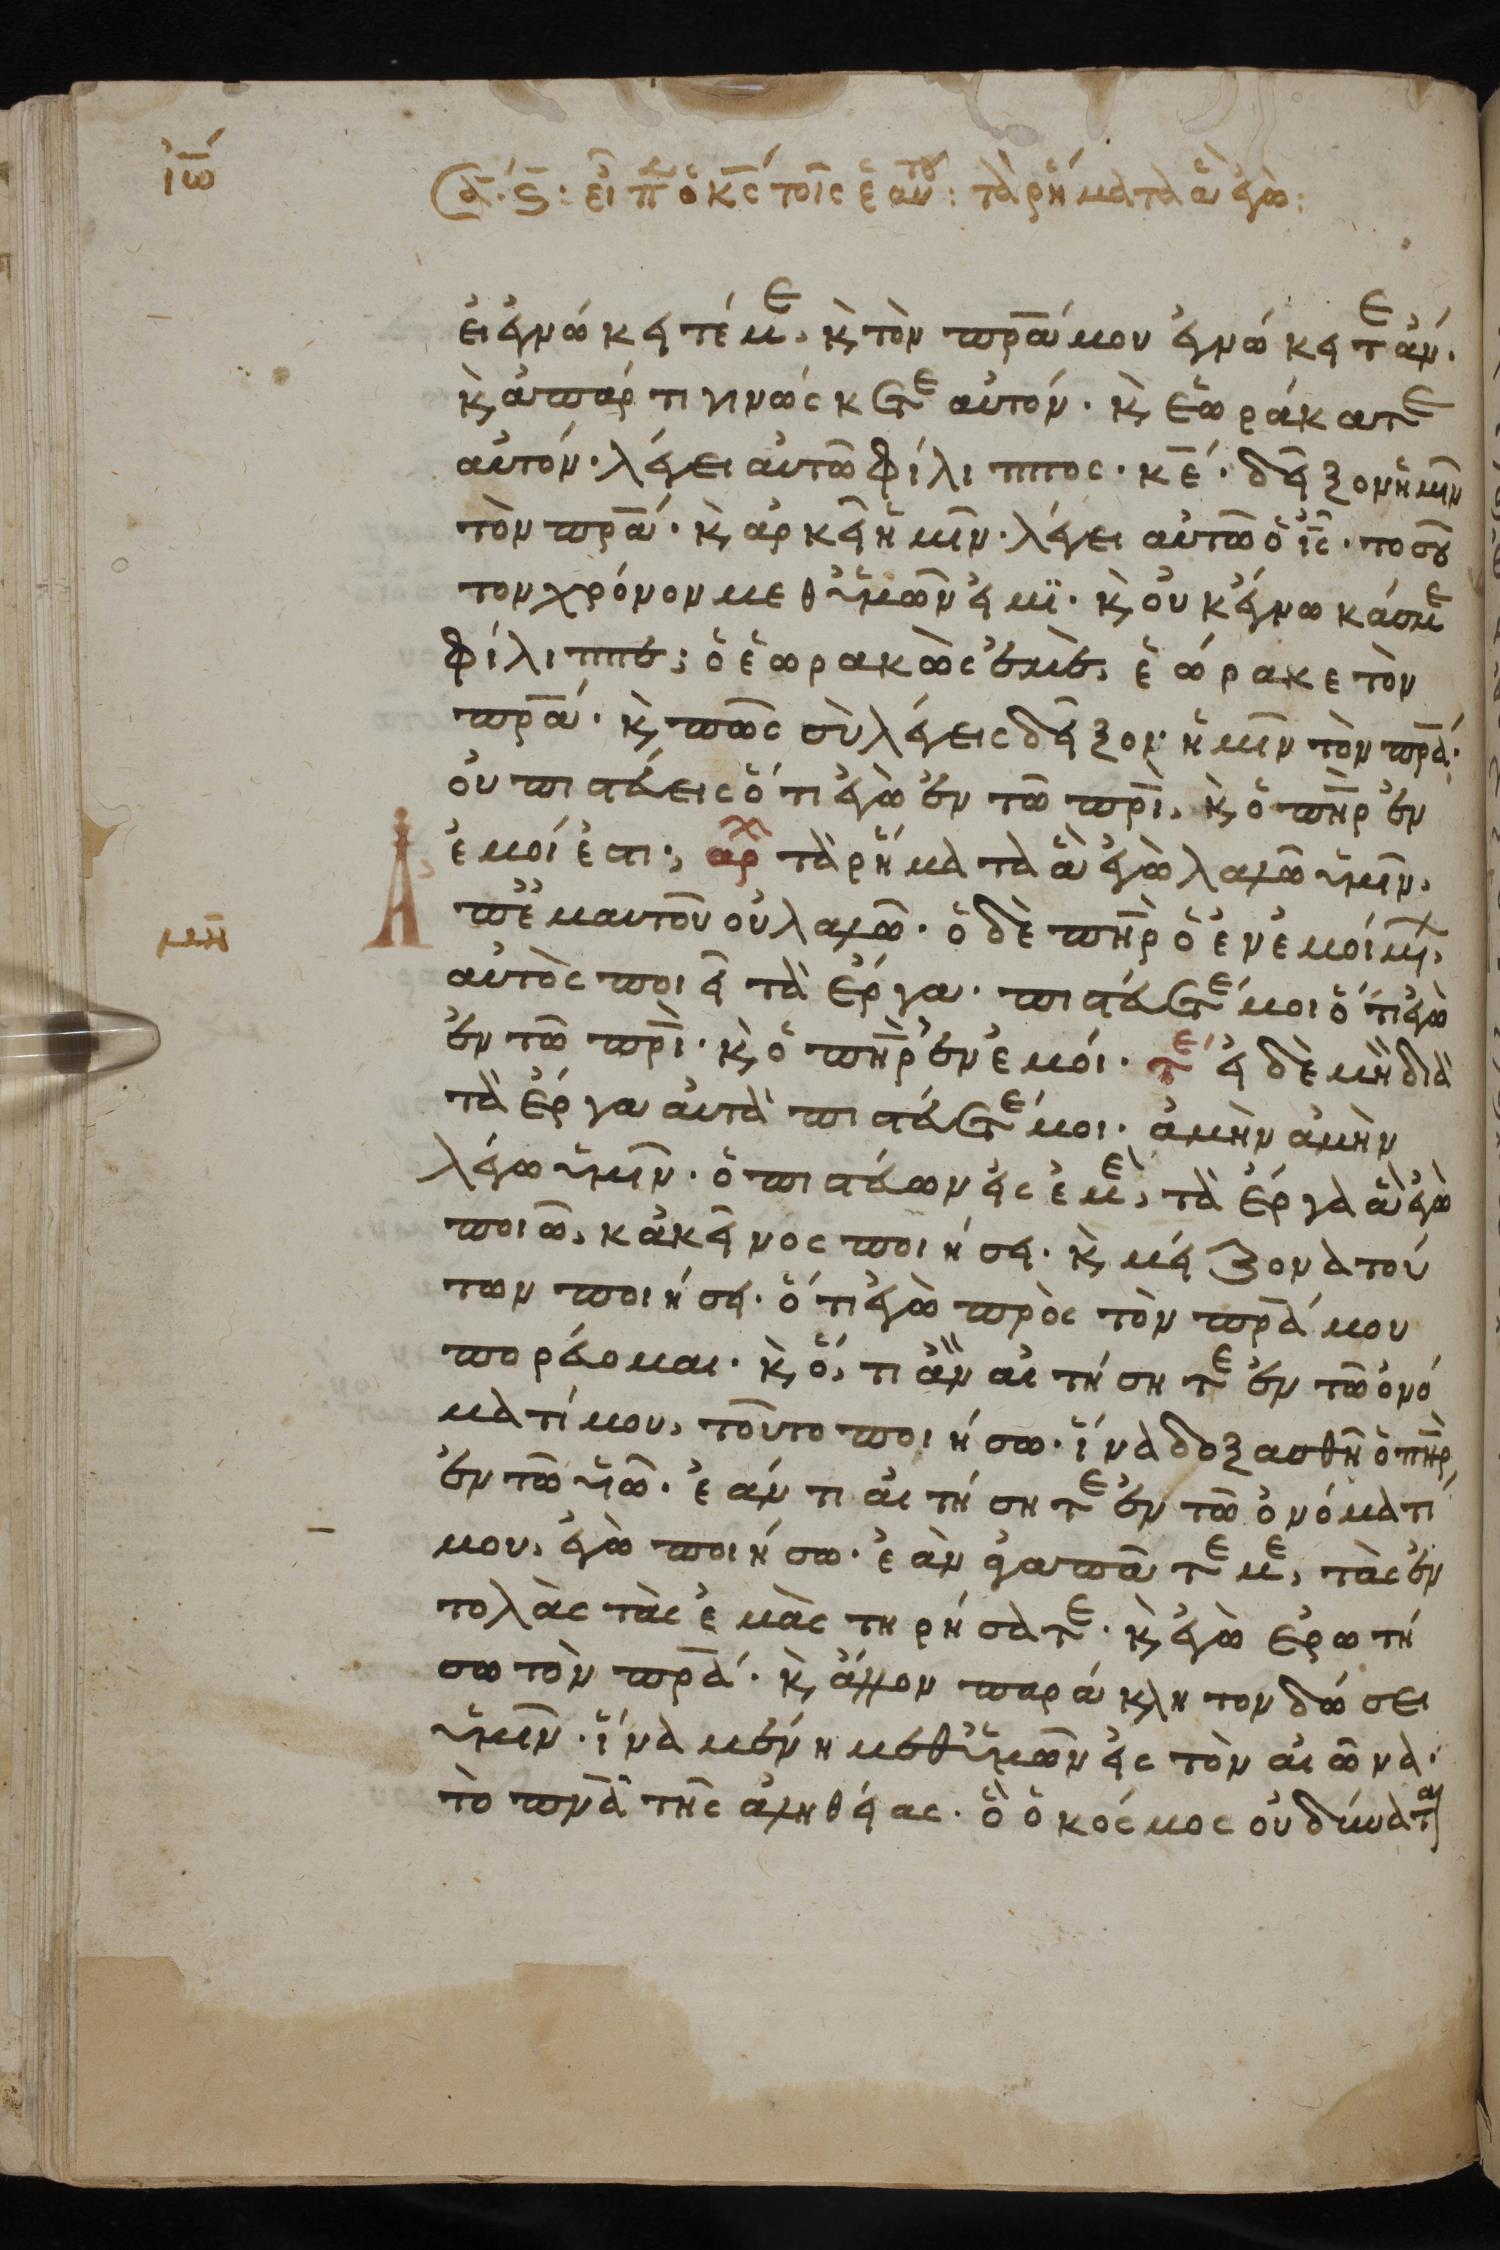 ἰω̅
Σα. ϛ̅: εἶπ ὁ κ̅ς τοῖς ἑαυτοῦ: τὰ ῥήματα ἃ ἐγὼ:
εἰ ἐγνώκειτέ με, κ̀ τὸν π̅ρ̅α μου ἐγνώκειτε ἄν·
κ̀ ἀπάρτι γινώσκετε αὐτόν· κ̀ ἑωράκατε
αὐτόν· λέγει αὐτῶ φίλιππος· κ̅ε· δεῖξον ἡμῖν
τὸν π̅ρ̅α· κ̀ ἀρκεῖ ἡμῖν· λέγει αὐτῶ ὁ ι̅ς· τοσοῦ
τον χρόνον μεθ ὑμῶν εἰμϊ· κ̀ οὐκ ἔγνωκάς με
φίλιππε; ὁ ἑωρακὼς ἐμὲ, ἑώρακε τὸν
π̅ρ̅α· κ̀ πῶς σὺ λέγεις δεῖξον ἡμῖν τὸν π̅ρ̅α·
οὐ πιστεύεις ὅτι ἐγὼ ἐν τῶ π̅ρ̅ι, κ̀ ὁ π̅η̅ρ ἐν
ἐμοί ἐστι; ἀρχ τὰ ῥήματα ἃ ἐγὼ λαλῶ ὑμῖν,
ἀπ ἐμαυτοῦ οὐ λαλῶ· ὁ δὲ π̅η̅ρ ὁ ἐν ἐμοί μένων,
αὐτὸς ποιεῖ τὰ ἔργα· πιστεύετέ μοι ὅτι ἐγὼ
ἐν τῶ π̅ρ̅ι· κ̀ ὁ π̅η̅ρ ἐν ἐμοί· τε εἰ δὲ μὴ διὰ
τὰ ἔργα αὐτὰ πιστεύετέ μοι· ἀμὴν ἀμὴν
λέγω ὑμῖν· ὁ πιστεύων εἰς ἐμὲ, τὰ ἔργα ἃ ἐγὼ
ποιῶ, κἀκεῖνος ποιήσει· κ̀ μείζονα τού
των ποιήσει· ὅτι ἐγὼ πρὸς τὸν π̅ρ̅α μου
πορεύομαι· κ̀ ὅ, τι ἂν αἰτήσητε ἐν τῶ ὀνό
ματί μου, τοῦτο ποιήσω· ἵνα δοξασθῆ ὁ π̅η̅ρ,
ἐν τῶ υ̅ῶ· ἐάν τι αἰτήσητε ἐν τῶ ὀνόματί
μου, ἐγὼ ποιήσω· ἐὰν ἀγαπᾶτέ με, τὰς ἐν
τολὰς τὰς ἐμὰς τηρήσατε· κ̀ ἐγὼ ἐρωτή
σω τὸν π̅ρ̅α· κ̀ ἄλλον παράκλητον δώσει
ὑμῖν· ἵνα μένη μεθ ὑμῶν εἰς τὸν αἰῶνα·
τὸ π̅ν̅α τῆς ἀληθείας· ὃ ὁ κόσμος οὐ δύναται